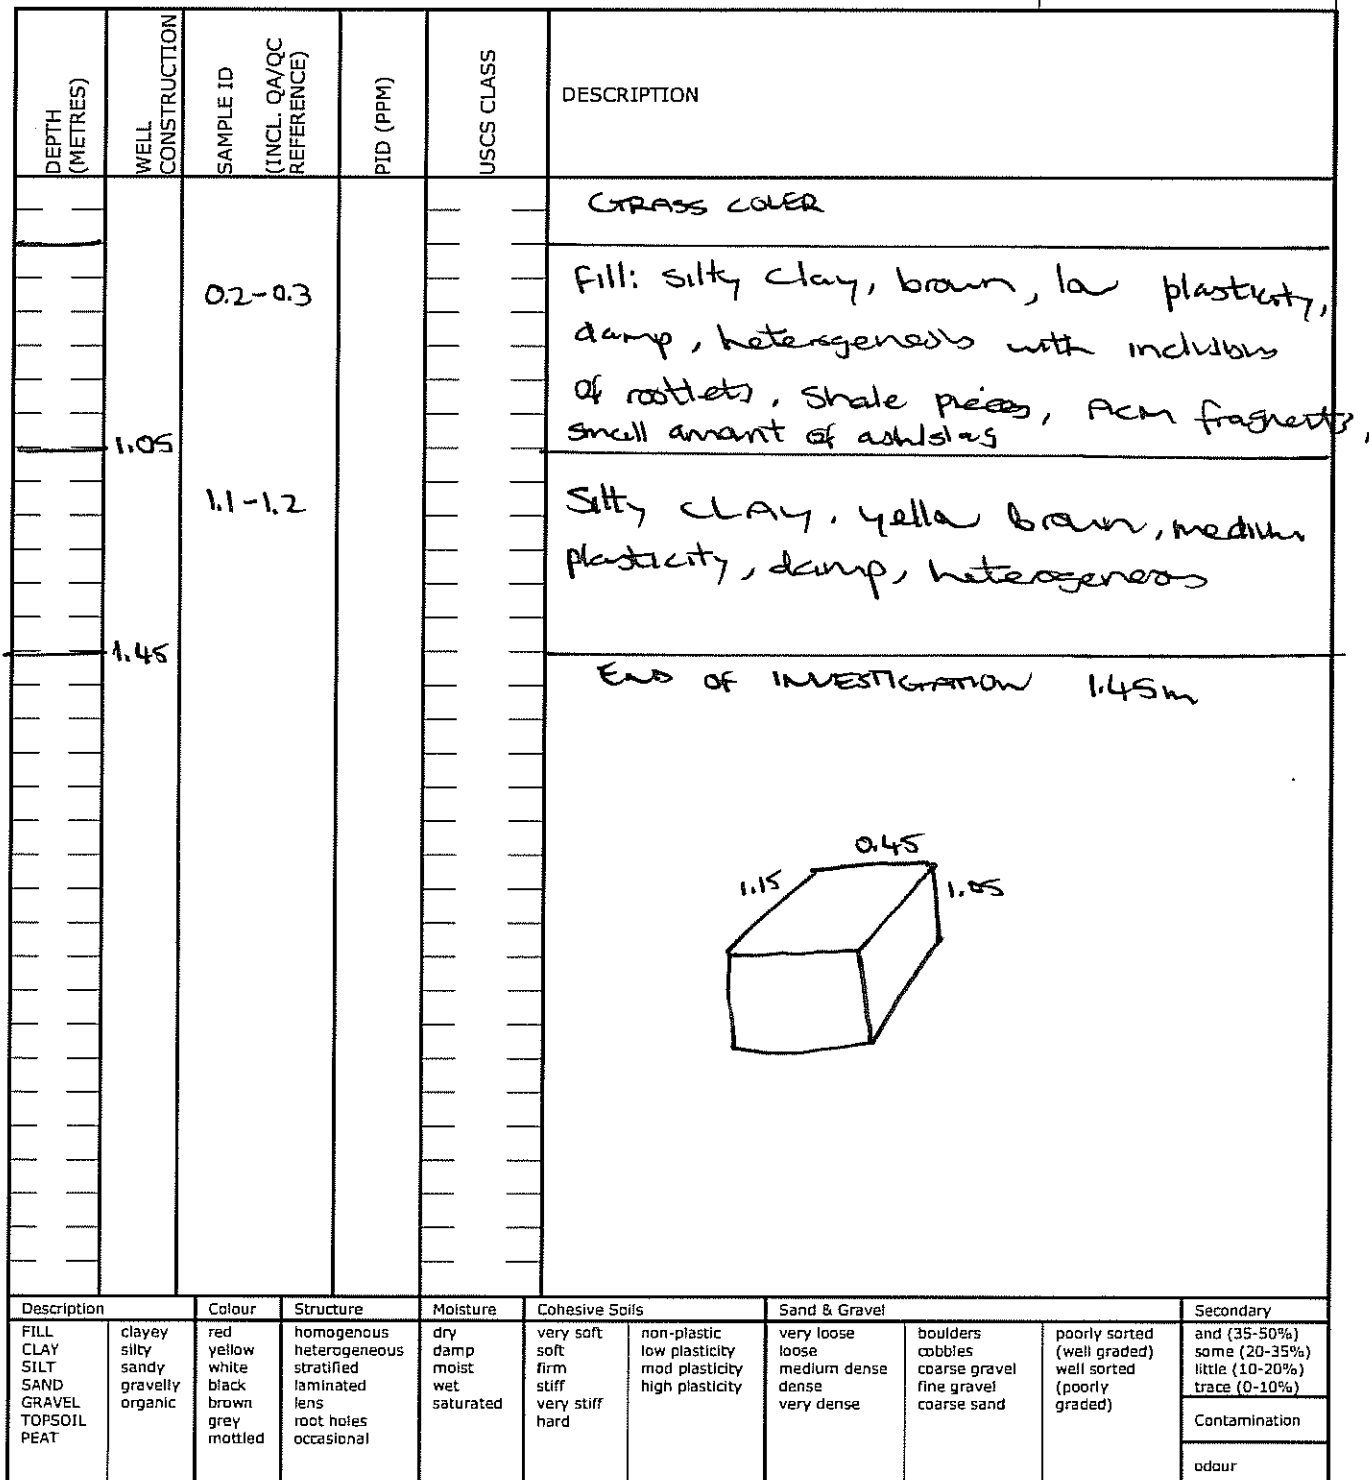 DEPTH
(METRES)
WELL
CONSTRUCTION
SAMPLE ID
(INCL. QA/QC
REFERENCE)
PID (PPM)
USCS CLASS
DESCRIPTION
GRASS COVER
0.2-0.3
Fill: silty clay, brown, low plasticity,
damp, heterogeneous with inclusions
of rootlets, shale pieces, ACM fragments,
small amount of ash/slag
1.05
1.1-1.2
Silty CLAY, yellow brown, medium
plasticity, damp, heterogeneous
1.45
END OF INVESTIGATION 1.45m
0.45
1.15
1.05
Description
Colour
Structure
Moisture
Cohesive Soils
Sand & Gravel
Secondary
FILL
CLAY
SILT
SAND
GRAVEL
TOPSOIL
PEAT
clayey
silty
sandy
gravelly
organic
red
yellow
white
black
brown
grey
mottled
homogenous
heterogeneous
stratified
laminated
lens
root holes
occasional
dry
damp
moist
wet
saturated
very soft
soft
firm
stiff
very stiff
hard
non-plastic
low plasticity
mod plasticity
high plasticity
very loose
loose
medium dense
dense
very dense
boulders
cobbles
coarse gravel
fine gravel
coarse sand
poorly sorted
(well graded)
well sorted
(poorly
graded)
and (35-50%)
some (20-35%)
little (10-20%)
trace (0-10%)
Contamination
odour